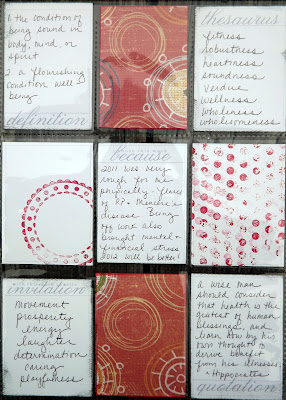 1. the condition of
being sound in
body, mind, or
spirit
2. a flourishing
condition well-
being
definition
thesaurus
fitness
robustness
heartness
soundness
verdue
wellness
wholiness
wholesomeness
because
2011 was very
rough for me
physically - years
of RP + Meniere's
disease. Being
off work also
brought mental +
financial stress
2012 will be better!
invitation
movement
prosperity
energy
laughter
determination
caring
playfulness
a wise man
should consider
that health is the
gratest of human
blessings, and
learn how by his
own thought to
derive benefit
from his illnesses
- Hippocrates
quotation